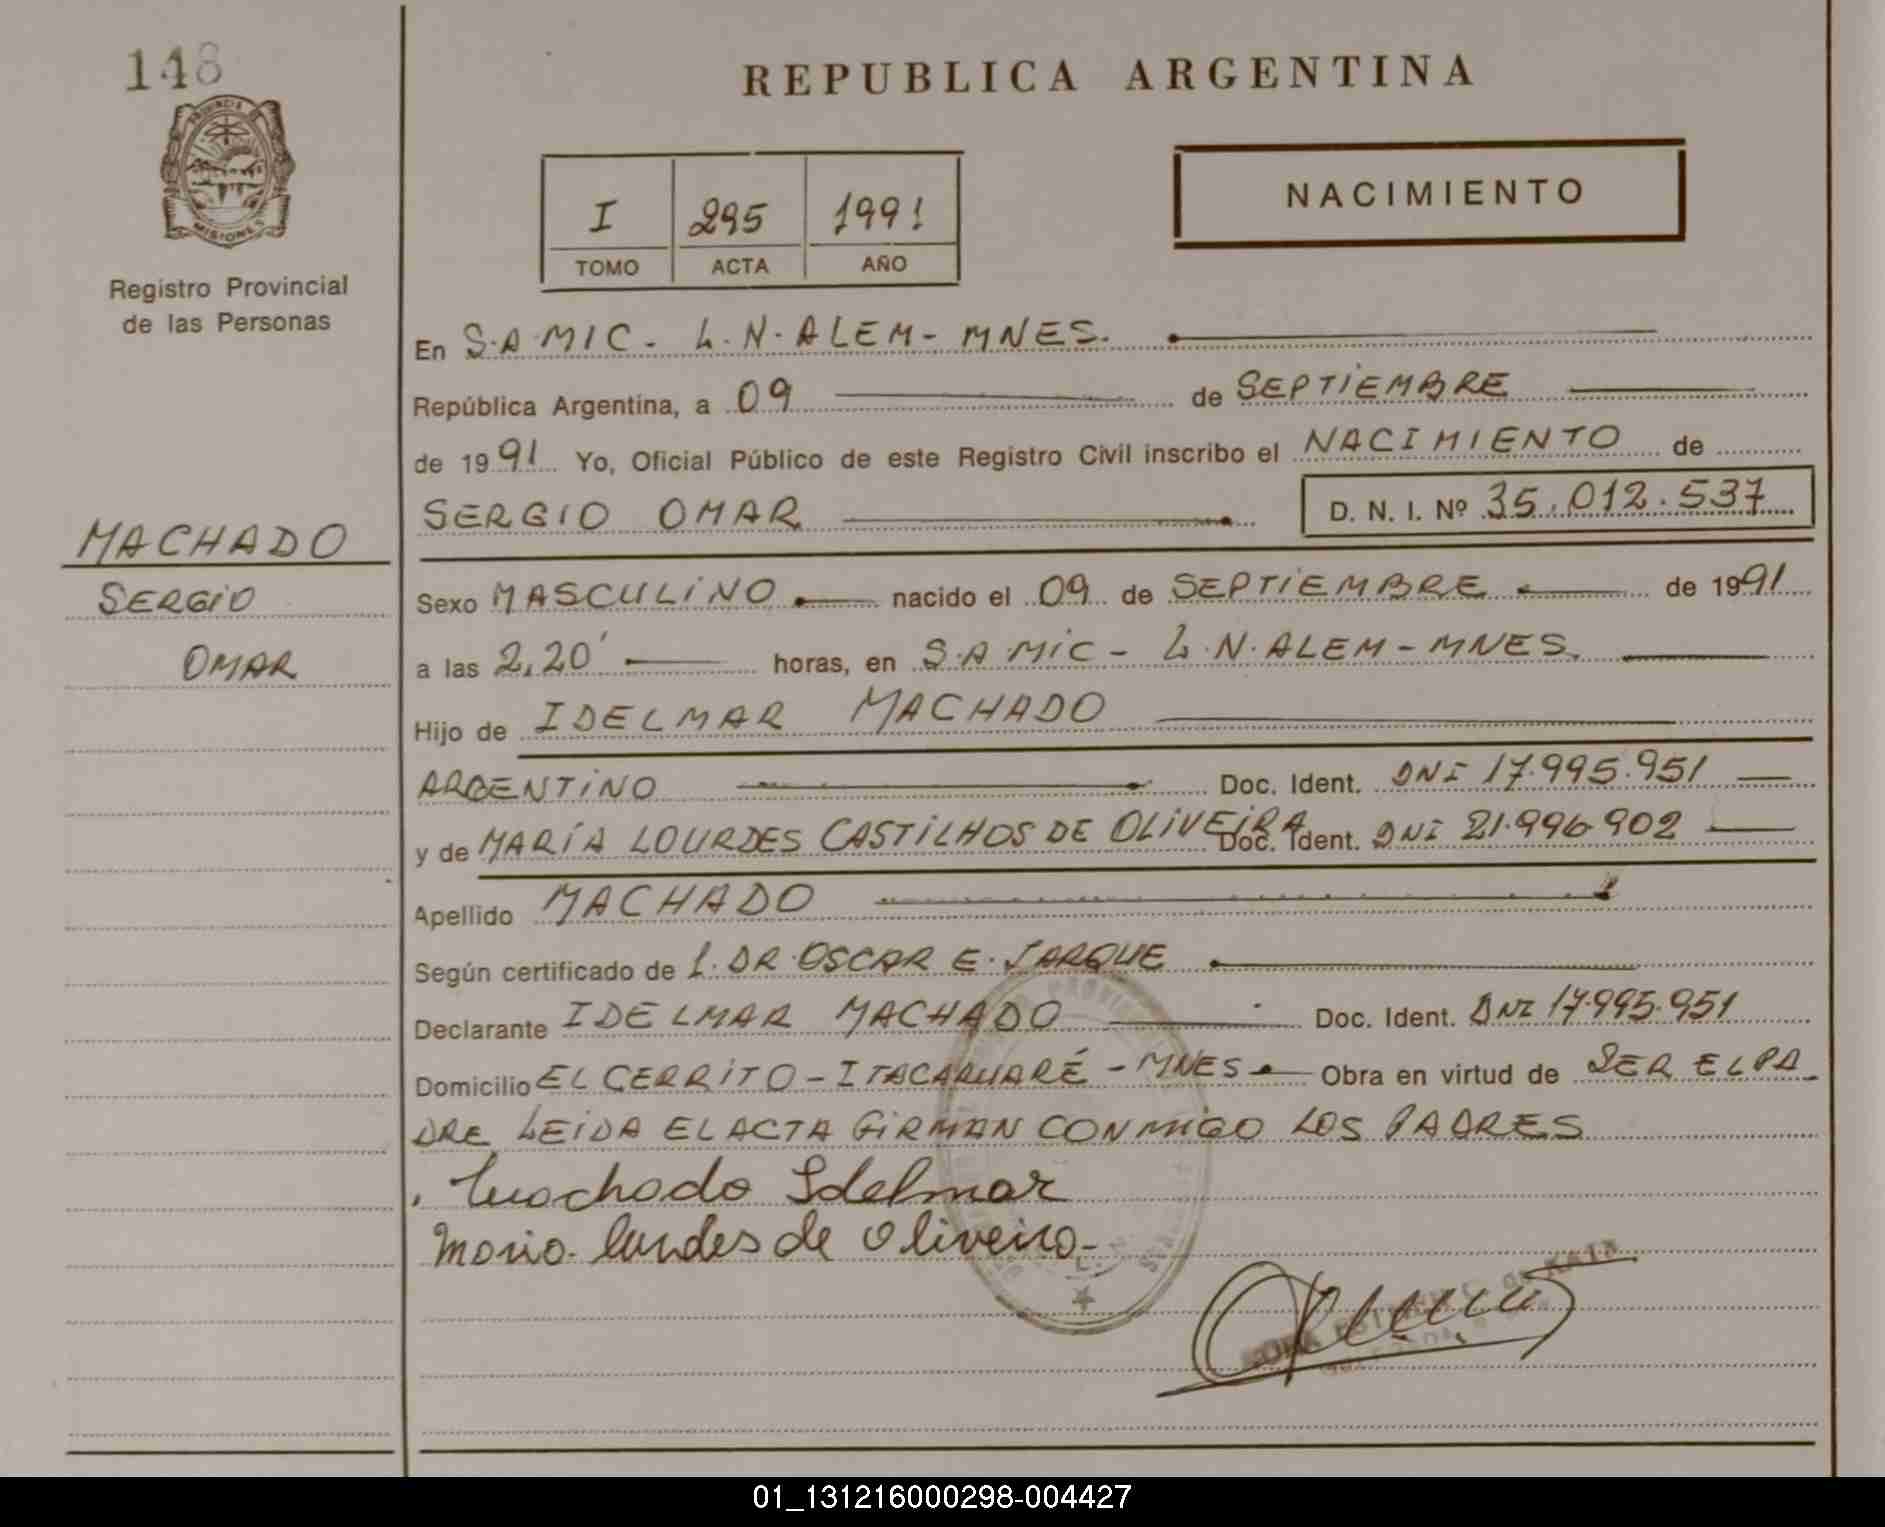 148
PROVINCIA DE
MISIONES
Registro Provincial
de las Personas
MACHADO
SERGIO
OMAR
REPUBLICA ARGENTINA
I 295 1991
TOMO ACTA AÑO
NACIMIENTO
En S.A.MIC - L.N.ALEM - MNES.
República Argentina, a 09 de SEPTIEMBRE
de 1991 Yo, Oficial Público de este Registro Civil inscribo el NACIMIENTO de
SERGIO OMAR D. N. I. Nº 35.012.537
Sexo MASCULINO nacido el 09 de SEPTIEMBRE de 1991
a las 2,20' horas, en S.A MIC - L.N.ALEM - MNES.
Hijo de IDELMAR MACHADO
ARGENTINO Doc. Ident. DNI 17.995.951
y de MARÍA LOURDES CASTILHOS DE OLIVEIRA Doc. Ident. DNI 21.996.902
Apellido MACHADO
Según certificado de L. DR. OSCAR E. JARQUE
Declarante IDELMAR MACHADO Doc. Ident. DNI 17.995.951
Domicilio EL CERRITO - ITACARUARÉ - MNES Obra en virtud de SER EL PA
DRE LEIDA EL ACTA FIRMAN CONMIGO LOS PADRES
Machado Idelmar
Maria lurdes de Oliveira
01_131216000298-004427